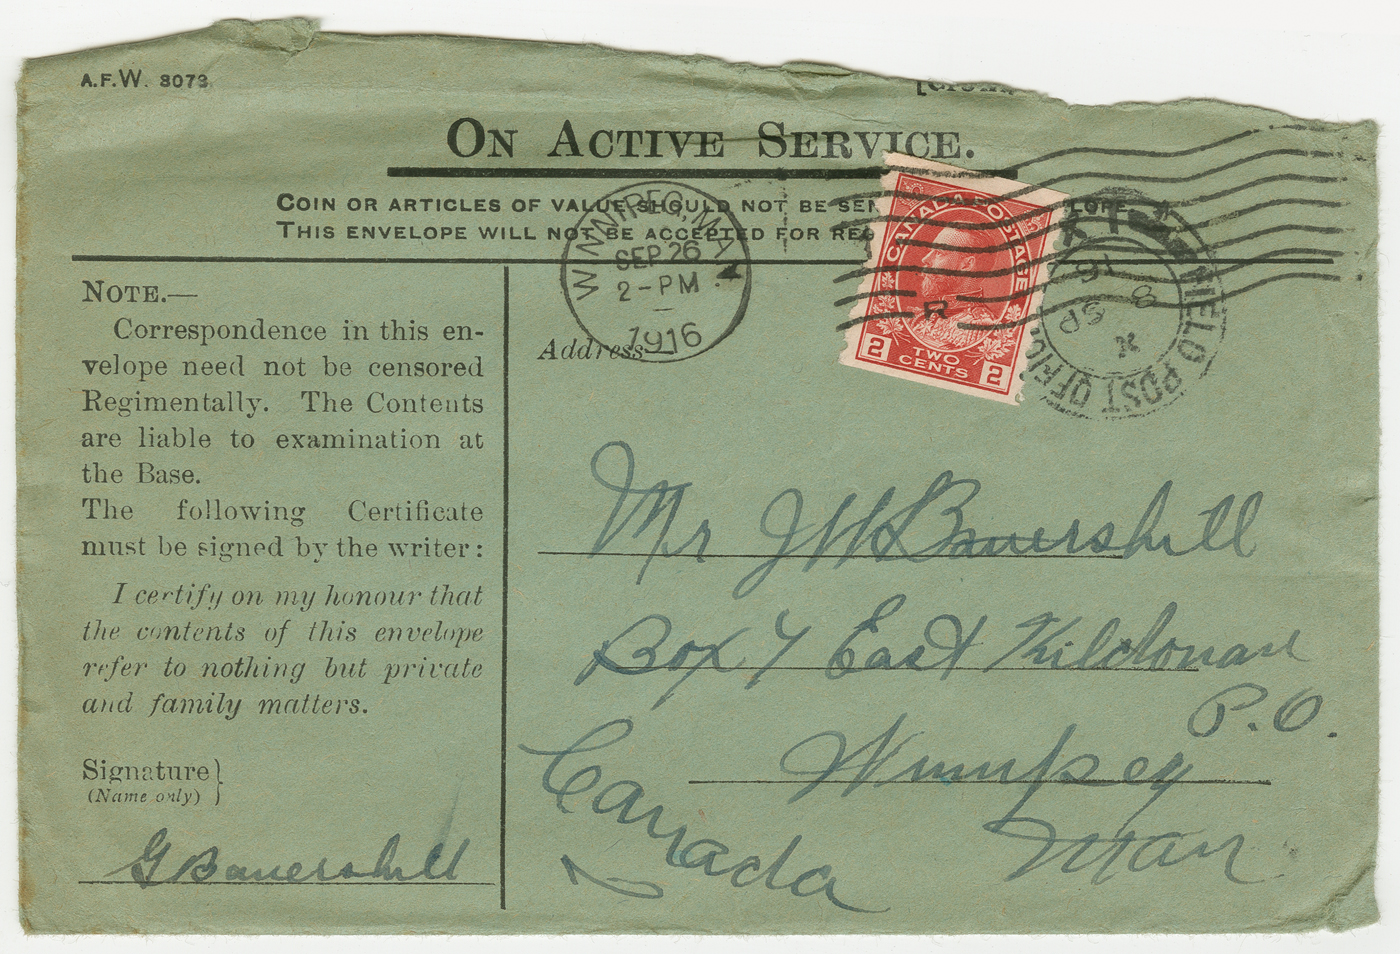 A.F.W. 3073
ON ACTIVE SERVICE.
COIN OR ARTICLES OF VALUE SHOULD NOT BE
THIS ENVELOPE WILL NOT BE ACCEPTED FOR
WINNIPEG, MAN.
SEP 26
2-PM
1916
CANADA POSTAGE
R
2 TWO CENTS 2
FIELD POST OFFIC
X
8 SP
16
NOTE.—
Correspondence in this en-
velope need not be censored
Regimentally. The Contents
are liable to examination at
the Base.
The following Certificate
must be signed by the writer:
I certify on my honour that
the contents of this envelope
refer to nothing but private
and family matters.
Signature}
(Name only)
G Bauershill
Address
Mr J W Bauershill
Box 7 East Kildonan
P.O.
Winnipeg
Man
Canada